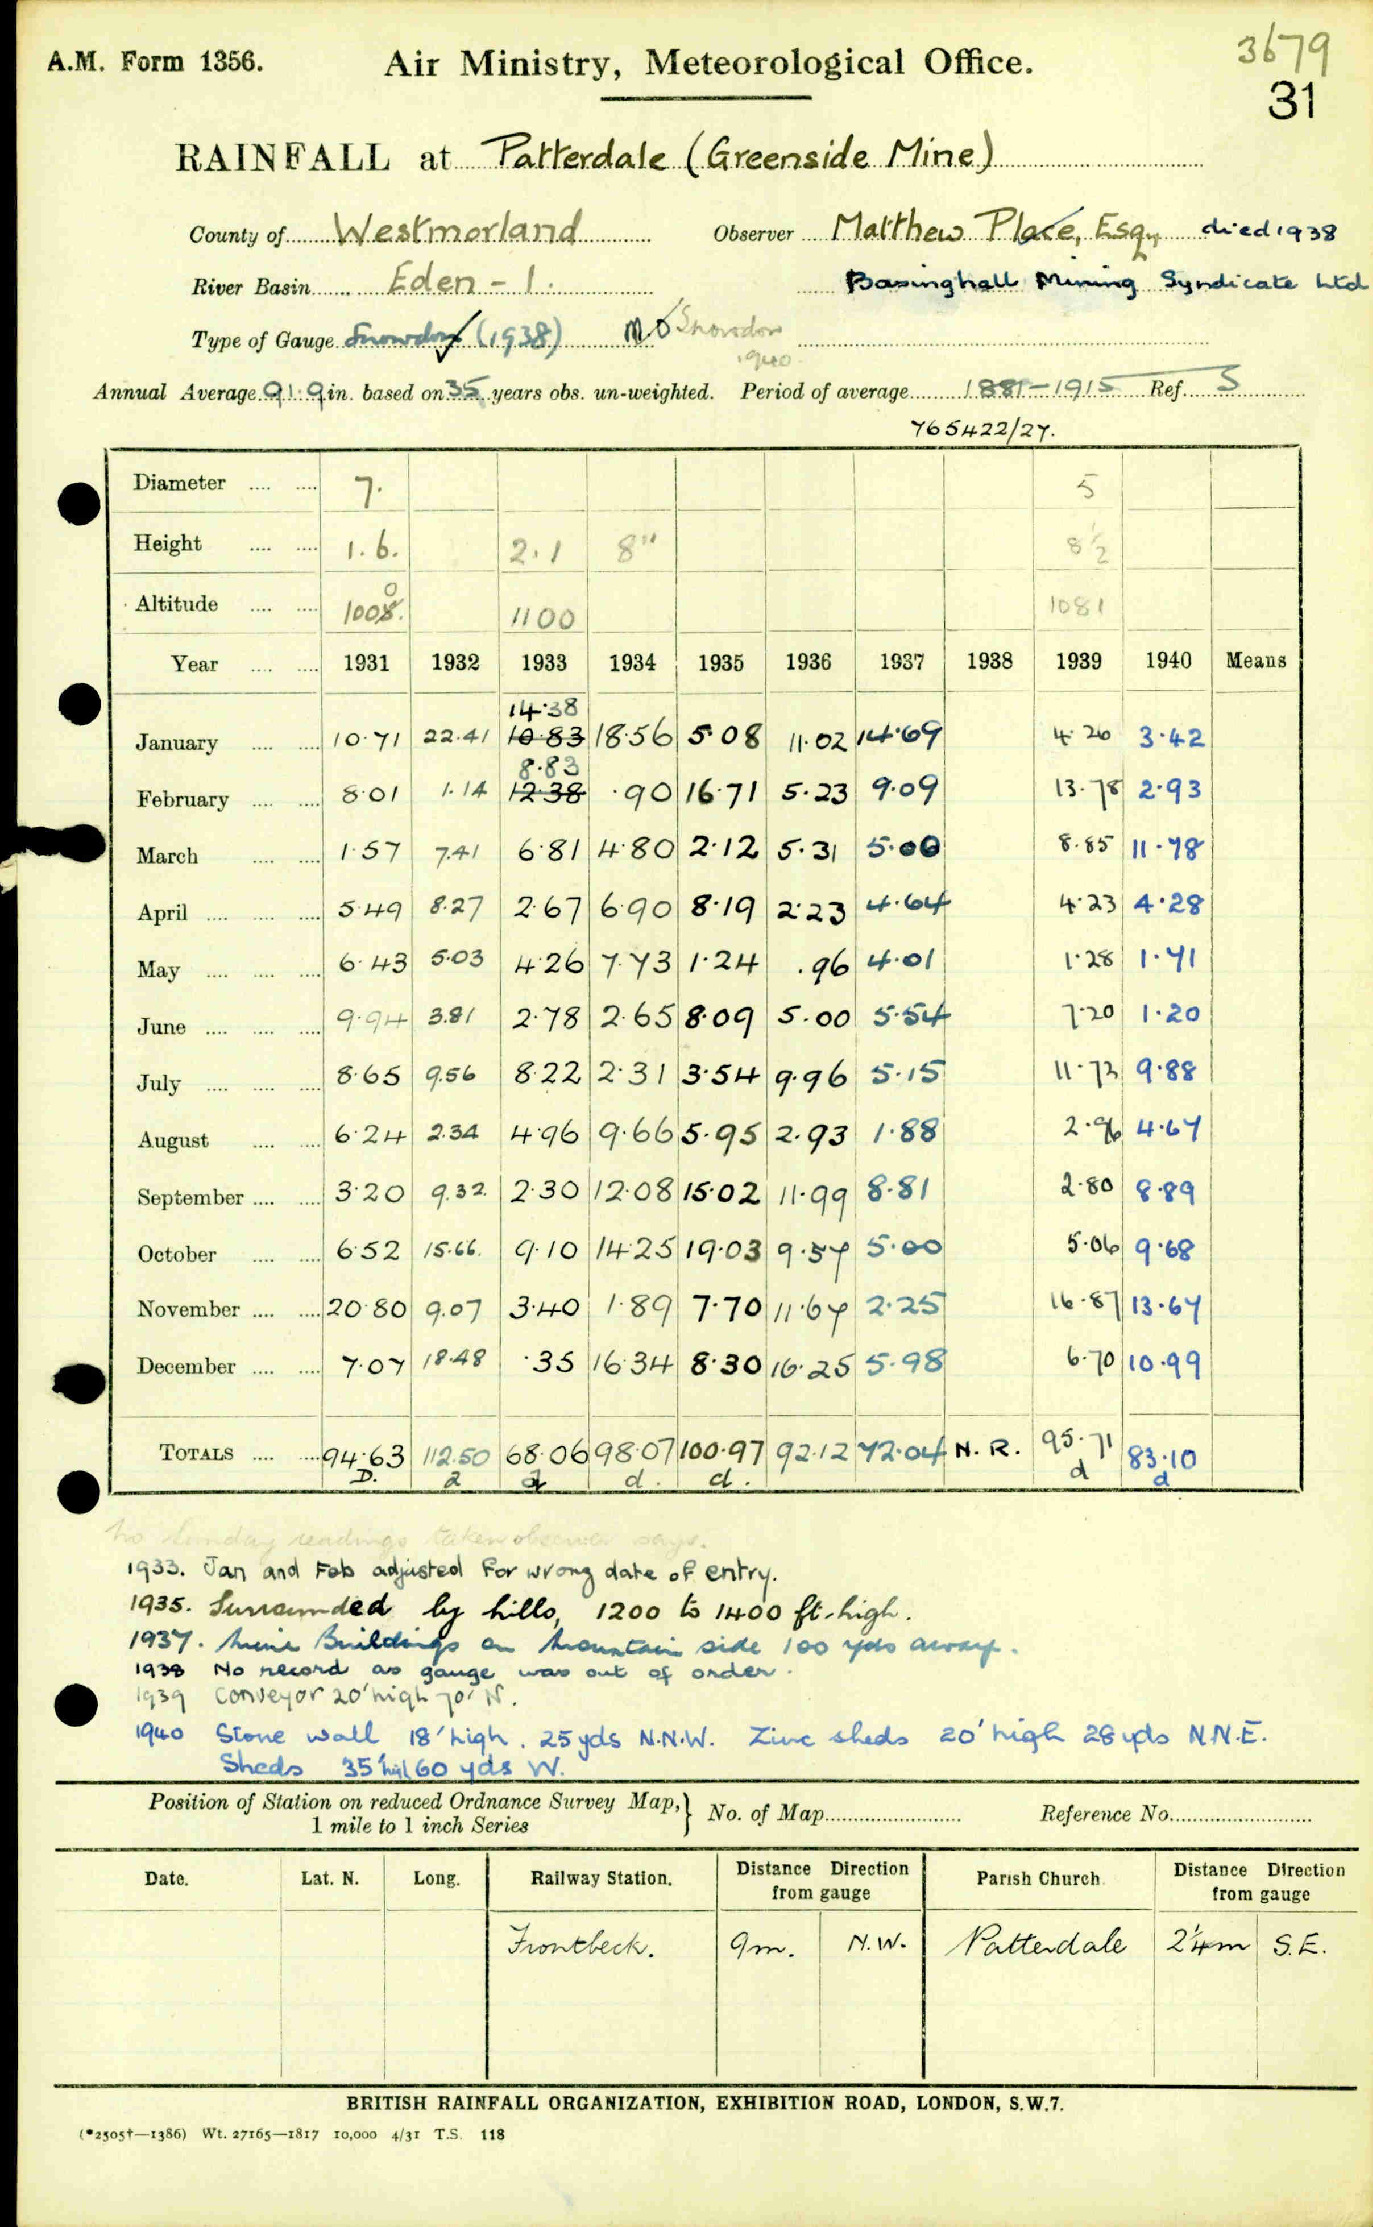 A.M. Form 1356.
Air Ministry, Meteorological Office.
3679
31
RAINFALL at Patterdale (Greenside Mine)
County of Westmorland Observer Matthew Place, Esq. died 1938
River Basin Eden - 1. Basinghall Mining Syndicate Ltd
Type of Gauge Snowdon (1938) MO Snowdon
1940
Annual Average 91.9 in. based on 35 years obs. un-weighted. Period of average 1881-1915 Ref. S
765422/27.
Diameter 7. 5
Height 1.6. 2.1 8" 8½
Altitude 1008. 0 1100 1081
Year 1931 1932 1933 1934 1935 1936 1937 1938 1939 1940 Means
14.38
January 10.71 22.41 10.83 18.56 5.08 11.02 14.69 4.26 3.42
8.83
February 8.01 1.14 12.38 .90 16.71 5.23 9.09 13.78 2.93
March 1.57 7.41 6.81 4.80 2.12 5.31 5.00 8.85 11.78
April 5.49 8.27 2.67 6.90 8.19 2.23 4.64 4.23 4.28
May 6.43 5.03 4.26 7.73 1.24 .96 4.01 1.28 1.71
June 9.94 3.81 2.78 2.65 8.09 5.00 5.54 7.20 1.20
July 8.65 9.56 8.22 2.31 3.54 9.96 5.15 11.72 9.88
August 6.24 2.34 4.96 9.66 5.95 2.93 1.88 2.96 4.67
September 3.20 9.32 2.30 12.08 15.02 11.99 8.81 2.80 8.89
October 6.52 15.66 9.10 14.25 19.03 9.57 5.00 5.06 9.68
November 20.80 9.07 3.40 1.89 7.70 11.67 2.25 16.87 13.67
December 7.07 18.48 .35 16.34 8.30 16.25 5.98 6.70 10.99
TOTALS 94.63 112.50 68.06 98.07 100.97 92.12 72.04 N. R. 95.71 83.10
D. d d d. d. d d
No Sunday readings taken observer says.
1933. Jan and Feb adjusted for wrong date of entry.
1935. Surrounded by hills, 1200 to 1400 ft. high.
1937. Mine Buildings on Mountain side 100 yds away.
1938 No record as gauge was out of order.
1939 Conveyor 20' high 70' N.
1940 Stone wall 18' high. 25 yds N.N.W. Zinc sheds 20' high 28 yds N.N.E.
Sheds 35' high 60 yds W.
Position of Station on reduced Ordnance Survey Map, } No. of Map Reference No.
1 mile to 1 inch Series
Date. Lat. N. Long. Railway Station. Distance Direction from gauge Parish Church Distance Direction from gauge
Trontbeck. 9m. N.W. Patterdale 2¼m S.E.
BRITISH RAINFALL ORGANIZATION, EXHIBITION ROAD, LONDON, S.W.7.
(*2505†—1386) Wt. 27165—1817 10,000 4/31 T.S. 118